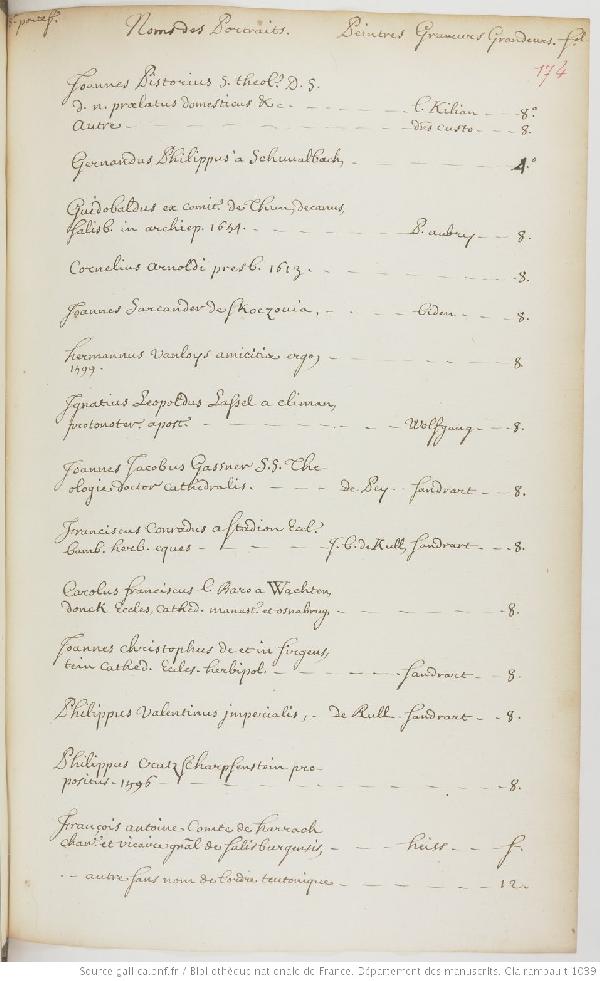 Noms des Portraits. Peintres Graveurs Grandeurs. fol
174
Joannes Pistorius S. theol. D. S.
D. n. prælatus domesticus &c - - - l. Kilian - - 8°
Autre - - - dns custo - - 8.
Gernandus Philippus a Schuualbach, - - - 4.°
Guidobaldus ex comit. de Thun, decanus,
Salisb. in archiep. 1654. - - - P. aubry - - 8.
Cornelius arnoldi presb. 1613. - - - 8.
Joannes Sarcander de Skoczouia, - - - Eiden - - 8.
hermannus Vanloys amicitiæ ergo, - - - 8
1599.
Ignatius Leopoldus Lassel a climan,
protonoter. apost. - - - Wolfgang - - 8.
Joannes Jacobus Gassner S.S. The-
ologiæ doctor cathedralis. - - - de Pey - Sandrart - - 8.
Franciscus Conradus a Stadion Eccl.
bamb. herb. eques - - - J. C. de Rull, Sandrart - - 8.
Carolus franciscus l. Baro a Wachten,
donck Eccles. cathed. monast. et osnabrug. - - - 8.
Joannes christophus de et in sirgens,
tein Cathed. Eccles. herbipol. - - - Sandrart - - 8.
Philippus Valentinus imperialis, - de Rull - Sandrart - - 8.
Philippus Cratz Scharpfenstein pro-
positus - 1596 - - - 8.
François antoine - Comte de harraoh
chan. et vicaire gnal de Salisburgensis, - - - heiss - - f.
- - autre sans nom de l'ordre teutonique - - - 12.
Source gallica.bnf.fr / Bibliothèque nationale de France. Département des manuscrits. Clairambault 1039